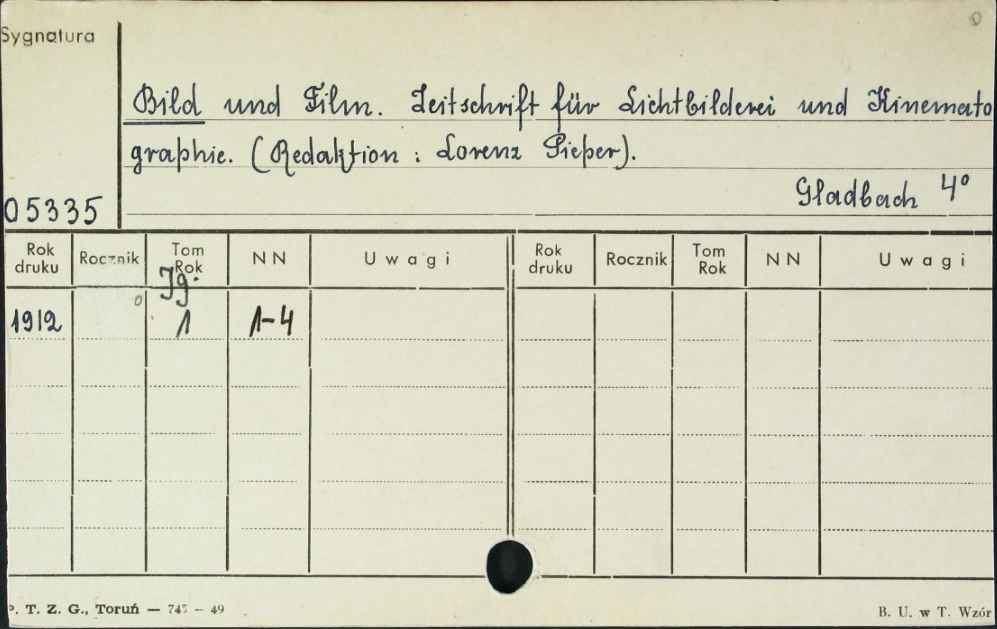 Sygnatura
Bild und Film. Zeitschrift für Lichtbilderei und Kinemato
graphie. (Redaktion : Lorenz Pieper).
Gladbach 4°
05335
Rok druku Rocznik Tom Rok NN Uwagi Rok druku Rocznik Tom Rok NN Uwagi
Jg.
1912 1 1-4
P. T. Z. G., Toruń — 745 – 49 B. U. w T. Wzór